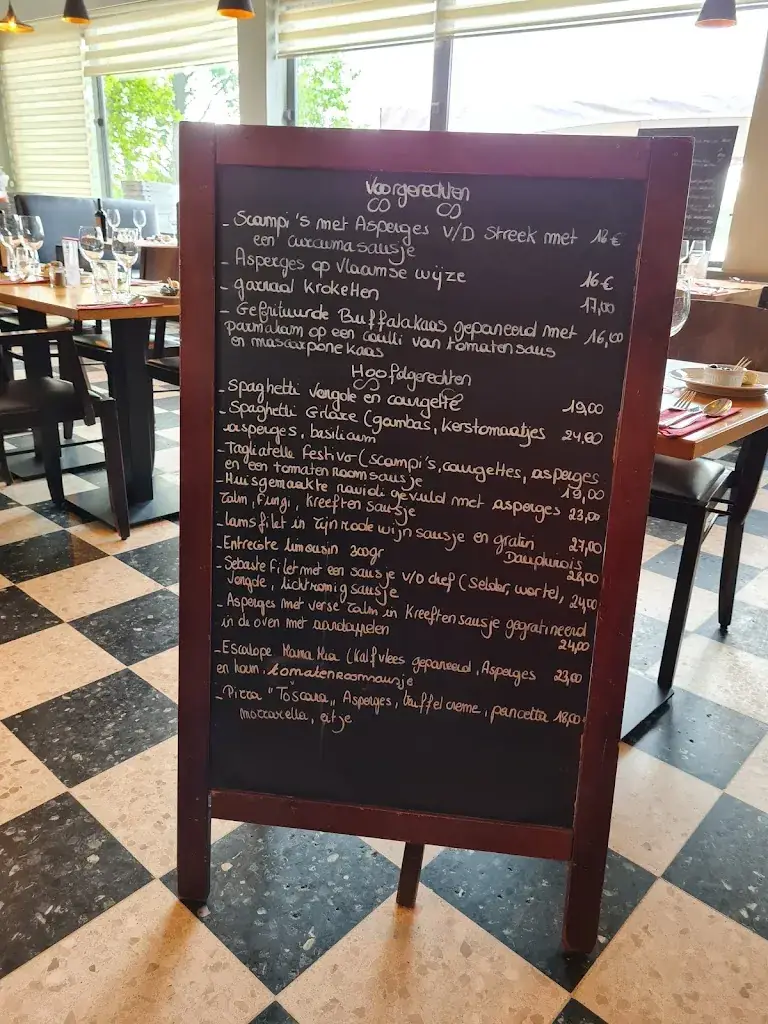 Voorgerechten
- Scampi's met Asperges v/d streek met 18 €
een curcumasausje
- Asperges op vlaamse wijze 16 €
- garnaal kroketten 17,00
- Gefrituurde Buffalakaas gepaneerd met 16,00
parmaham op een coulli van tomatensaus
en mascarponekaas
Hoofdgerechten
- Spaghetti Vongole en courgette 19,00
- Spaghetti Grace (gambas, kerstomaatjes 24,00
asperges, basilicum
- Tagliatelle festivo (scampi's, courgettes, asperges
en een tomatenroomsausje 19,00
- Huisgemaakte ravioli gevuld met asperges 23,00
Zalm, Fungi, Kreeftensausje
- Lamsfilet in zijn rode wijn sausje en gratin 27,00
Dauphinois
- Entrecôte limousin 300gr 28,00
- Sebaste filet met een sausje v/d chef (Selder, wortel, 24,00
Vongole, lichtromig sausje
- Asperges met verse zalm in Kreeftensausje gegratineerd
in de oven met aardappelen 24,00
- Escalope Mama Mia (Kalfvlees gepaneerd, Asperges 23,00
en ham, tomatenroomsausje
- Pizza "Toscara„ Asperges, truffelcreme, pancetta 18,00
mozzarella, eitje